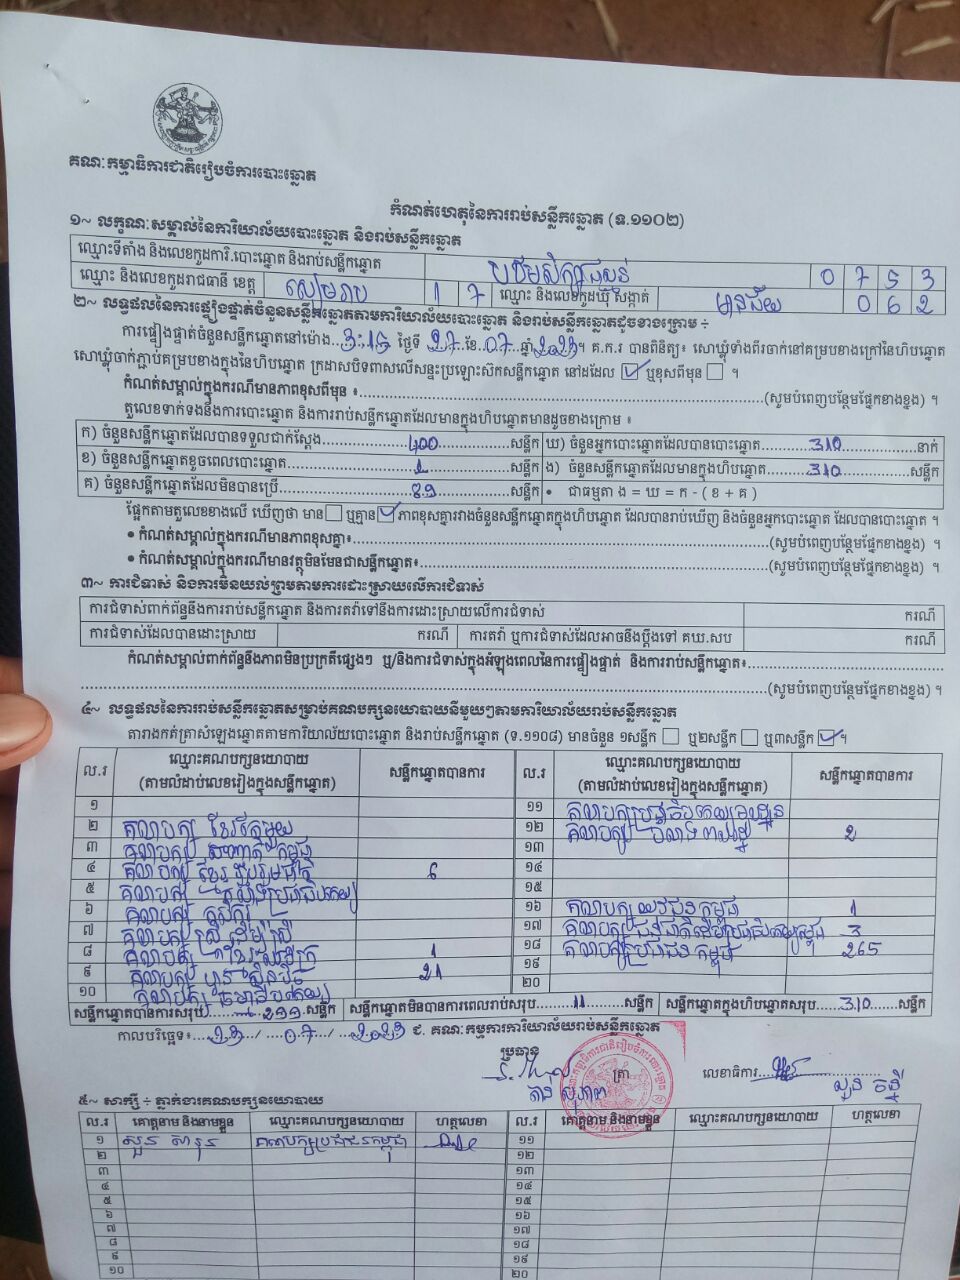 គណៈកម្មាធិការជាតិរៀបចំការបោះឆ្នោត
កំណត់ហេតុនៃការរាប់សន្លឹកឆ្នោត (ទ.១១០២)
១~ លក្ខណៈសម្គាល់នៃការិយាល័យបោះឆ្នោត និងរាប់សន្លឹកឆ្នោត
ឈ្មោះទីតាំង និងលេខកូដការិ.បោះឆ្នោត និងរាប់សន្លឹកឆ្នោត 0 7 5 3
ឈ្មោះ និងលេខកូដរាជធានី ខេត្ត សៀមរាប 1 7 ឈ្មោះ និងលេខកូដឃុំ សង្កាត់ មានជ័យ 0 6 2
២~ លទ្ធផលនៃការផ្ទៀងផ្ទាត់ចំនួនសន្លឹកឆ្នោតតាមការិយាល័យបោះឆ្នោត និងរាប់សន្លឹកឆ្នោតដូចខាងក្រោម ÷
ការផ្ទៀងផ្ទាត់ចំនួនសន្លឹកឆ្នោតនៅម៉ោង 3:15 ថ្ងៃទី 23 ខែ 07 ឆ្នាំ 2023។ គ.ក.រ បានពិនិត្យ៖ សោឃ្លុំទាំងពីរចាក់នៅគម្របខាងក្រៅនៃហិបឆ្នោត
សោឃ្លុំចាក់ភ្ជាប់គម្របខាងក្នុងនៃហិបឆ្នោត ក្រដាសបិទពាសលើសន្ទះប្រឡោះសិកសន្លឹកឆ្នោត នៅដដែល ☑ ឬខុសពីមុន ☐ ។
កំណត់សម្គាល់ក្នុងករណីមានភាពខុសពីមុន ៖ (សូមបំពេញបន្ថែមផ្នែកខាងខ្នង) ។
តួលេខទាក់ទងនឹងការបោះឆ្នោត និងការរាប់សន្លឹកឆ្នោតដែលមានក្នុងហិបឆ្នោតមានដូចខាងក្រោម ៖
ក) ចំនួនសន្លឹកឆ្នោតដែលបានទទួលជាក់ស្តែង 400 សន្លឹក ឃ) ចំនួនអ្នកបោះឆ្នោតដែលបានបោះឆ្នោត 310 នាក់
ខ) ចំនួនសន្លឹកឆ្នោតខូចពេលបោះឆ្នោត 1 សន្លឹក ង) ចំនួនសន្លឹកឆ្នោតដែលមានក្នុងហិបឆ្នោត 310 សន្លឹក
គ) ចំនួនសន្លឹកឆ្នោតដែលមិនបានប្រើ 89 សន្លឹក • ជាធម្មតា ង = ឃ = ក - ( ខ + គ )
ផ្អែកតាមតួលេខខាងលើ ឃើញថា មាន ☐ ឬគ្មាន ☑ ភាពខុសគ្នារវាងចំនួនសន្លឹកឆ្នោតក្នុងហិបឆ្នោត ដែលបានរាប់ឃើញ និងចំនួនអ្នកបោះឆ្នោត ដែលបានបោះឆ្នោត ។
• កំណត់សម្គាល់ក្នុងករណីមានភាពខុសគ្នា៖ (សូមបំពេញបន្ថែមផ្នែកខាងខ្នង) ។
• កំណត់សម្គាល់ក្នុងករណីមានវត្ថុមិនមែនជាសន្លឹកឆ្នោត៖ (សូមបំពេញបន្ថែមផ្នែកខាងខ្នង) ។
៣~ ការជំទាស់ និងការមិនយល់ព្រមតាមការដោះស្រាយលើការជំទាស់
ការជំទាស់ពាក់ព័ន្ធនឹងការរាប់សន្លឹកឆ្នោត និងការតវ៉ាទៅនឹងការដោះស្រាយលើការជំទាស់ ករណី
ការជំទាស់ដែលបានដោះស្រាយ ករណី ការតវ៉ា ឬការជំទាស់ដែលអាចនឹងប្តឹងទៅ គឃ.សប ករណី
កំណត់សម្គាល់ពាក់ព័ន្ធនឹងភាពមិនប្រក្រតីផ្សេងៗ ឬ/និងការជំទាស់ក្នុងអំឡុងពេលនៃការផ្ទៀងផ្ទាត់ និងការរាប់សន្លឹកឆ្នោត៖
(សូមបំពេញបន្ថែមផ្នែកខាងខ្នង) ។
៤~ លទ្ធផលនៃការរាប់សន្លឹកឆ្នោតសម្រាប់គណបក្សនយោបាយនីមួយៗតាមការិយាល័យរាប់សន្លឹកឆ្នោត
តារាងកត់ត្រាសំឡេងឆ្នោតតាមការិយាល័យបោះឆ្នោត និងរាប់សន្លឹកឆ្នោត (ទ.១១០៨) មានចំនួន ១សន្លឹក ☐ ឬ២សន្លឹក ☐ ឬ៣សន្លឹក ☑ ។
ល.រ ឈ្មោះគណបក្សនយោបាយ (តាមលំដាប់លេខរៀងក្នុងសន្លឹកឆ្នោត) សន្លឹកឆ្នោតបានការ ល.រ ឈ្មោះគណបក្សនយោបាយ (តាមលំដាប់លេខរៀងក្នុងសន្លឹកឆ្នោត) សន្លឹកឆ្នោតបានការ
១ ១១
២ គណបក្ស ខ្មែរតែមួយ ១២ គណបក្ស 2
៣ គណបក្ស កម្ពុជា ១៣
៤ គណបក្ស ខ្មែរ 6 ១៤
៥ គណបក្ស ១៥
៦ គណបក្ស ១៦ គណបក្ស យុវជនកម្ពុជា 1
៧ គណបក្ស ស្រី ដើម្បី ស្រី ១៧ គណបក្ស 3
៨ គណបក្ស 1 ១៨ គណបក្សប្រជាជន កម្ពុជា 265
៩ គណបក្ស ហ្វ៊ុន ស៊ិនប៉ិច 21 ១៩
១០ គណបក្ស ២០
សន្លឹកឆ្នោតបានការសរុប 299 សន្លឹក សន្លឹកឆ្នោតមិនបានការពេលរាប់សរុប 11 សន្លឹក សន្លឹកឆ្នោតក្នុងហិបឆ្នោតសរុប 310 សន្លឹក
កាលបរិច្ឆេទ៖ 23 / 07 / 2023 ជ. គណៈកម្មការការិយាល័យរាប់សន្លឹកឆ្នោត
ប្រធាន ត្រា លេខាធិការ
៥~ សាក្សី ÷ ភ្នាក់ងារគណបក្សនយោបាយ
ល.រ គោត្តនាម និងនាមខ្លួន ឈ្មោះគណបក្សនយោបាយ ហត្ថលេខា ល.រ គោត្តនាម និងនាមខ្លួន ឈ្មោះគណបក្សនយោបាយ ហត្ថលេខា
១ គណបក្សប្រជាជនកម្ពុជា ១១
២ ១២
៣ ១៣
៤ ១៤
៥ ១៥
៦ ១៦
៧ ១៧
៨ ១៨
៩ ១៩
១០ ២០